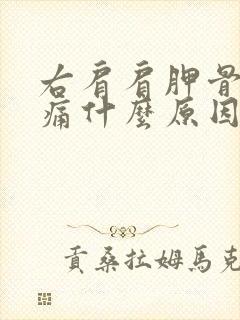 右肩肩胛骨
痛什麼原因
貢桑拉姆馬克